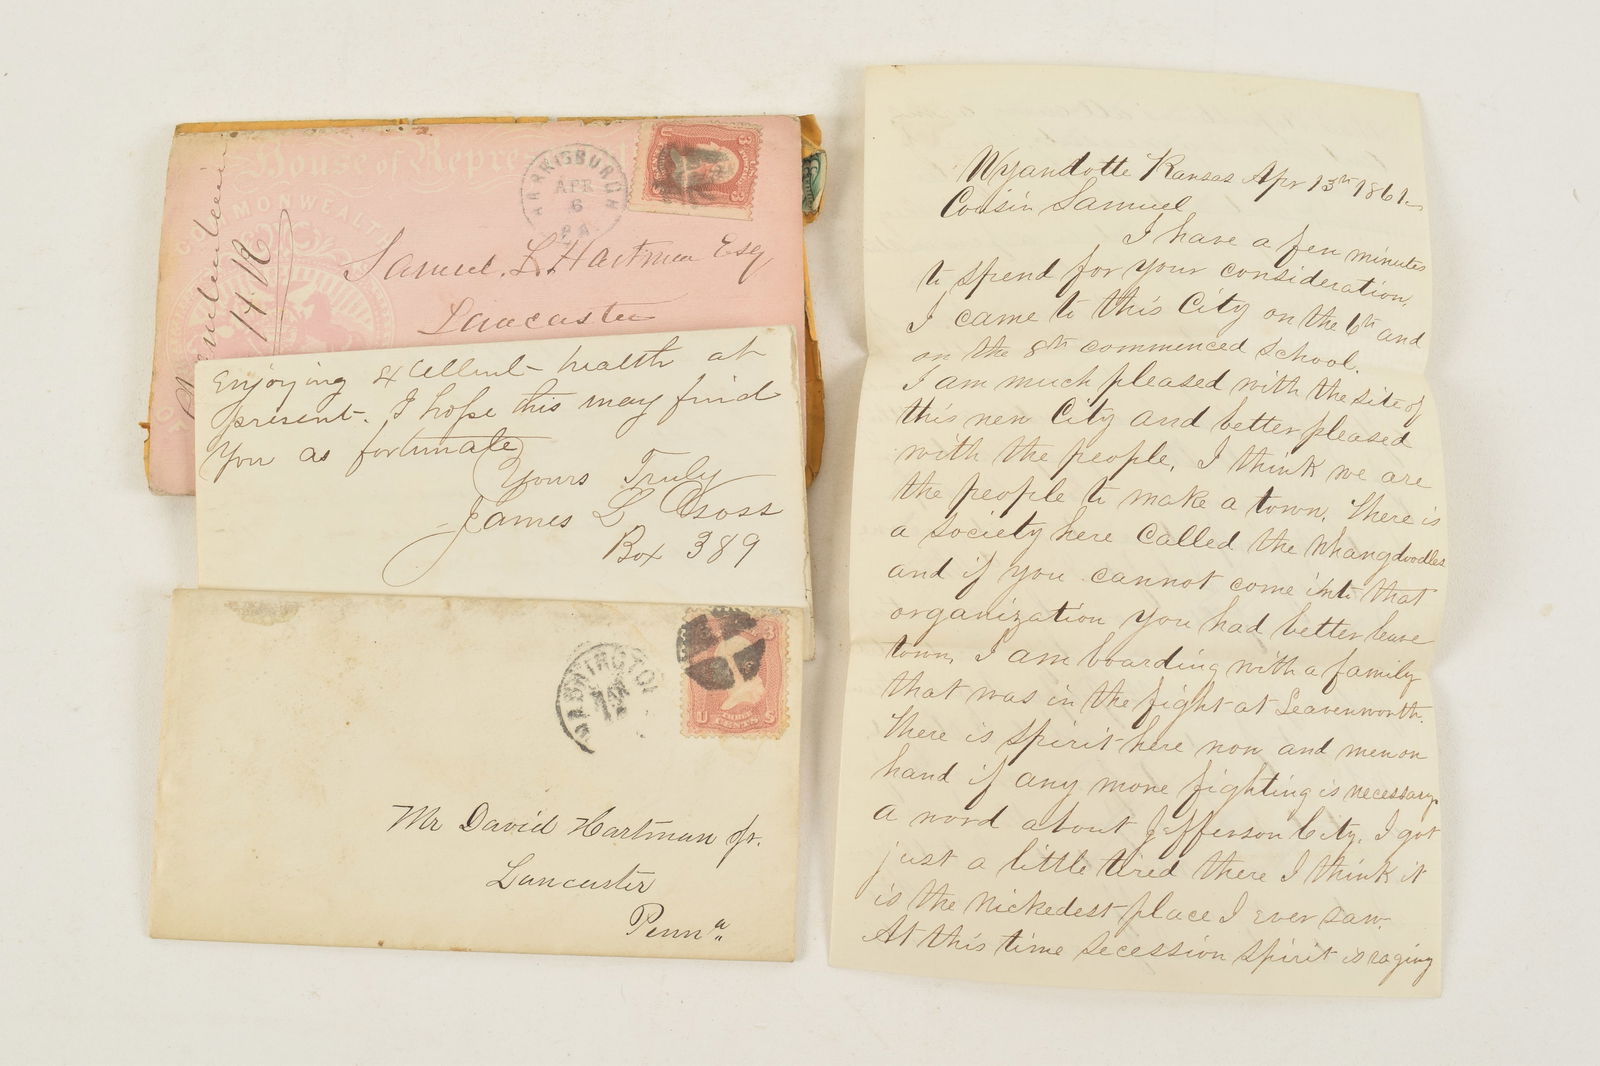 House of Repre
COMMONWEALTH
H.R.
HARRISBURG
APR
6
PA.
3
3
CENTS
Samuel L Hartman Esq
Lancaster
Enjoying excellent health at
present. I hope this may find
you as fortunate
Yours Truly
James L Cross
Box 389
WASHINGTON
3
U THREE S
CENTS
Mr David Hartman Jr.
Lancaster
Penna
Wyandotte Kansas Apr 13th 1861.
Cousin Samuel
I have a few minutes
to spend for your consideration.
I came to this City on the 6th and
on the 8th commenced school.
I am much pleased with the site of
this new City and better pleased
with the people. I think we are
the people to make a town. There is
a society here called the Whangdoodles
and if you cannot come into that
organization you had better leave
town. I am boarding with a family
that was in the fight at Leavenworth.
There is spirit here now and men on
hand if any more fighting is necessary.
A word about Jefferson City. I got
just a little tired there I think it
is the wickedest place I ever saw.
At this time secession spirit is raging